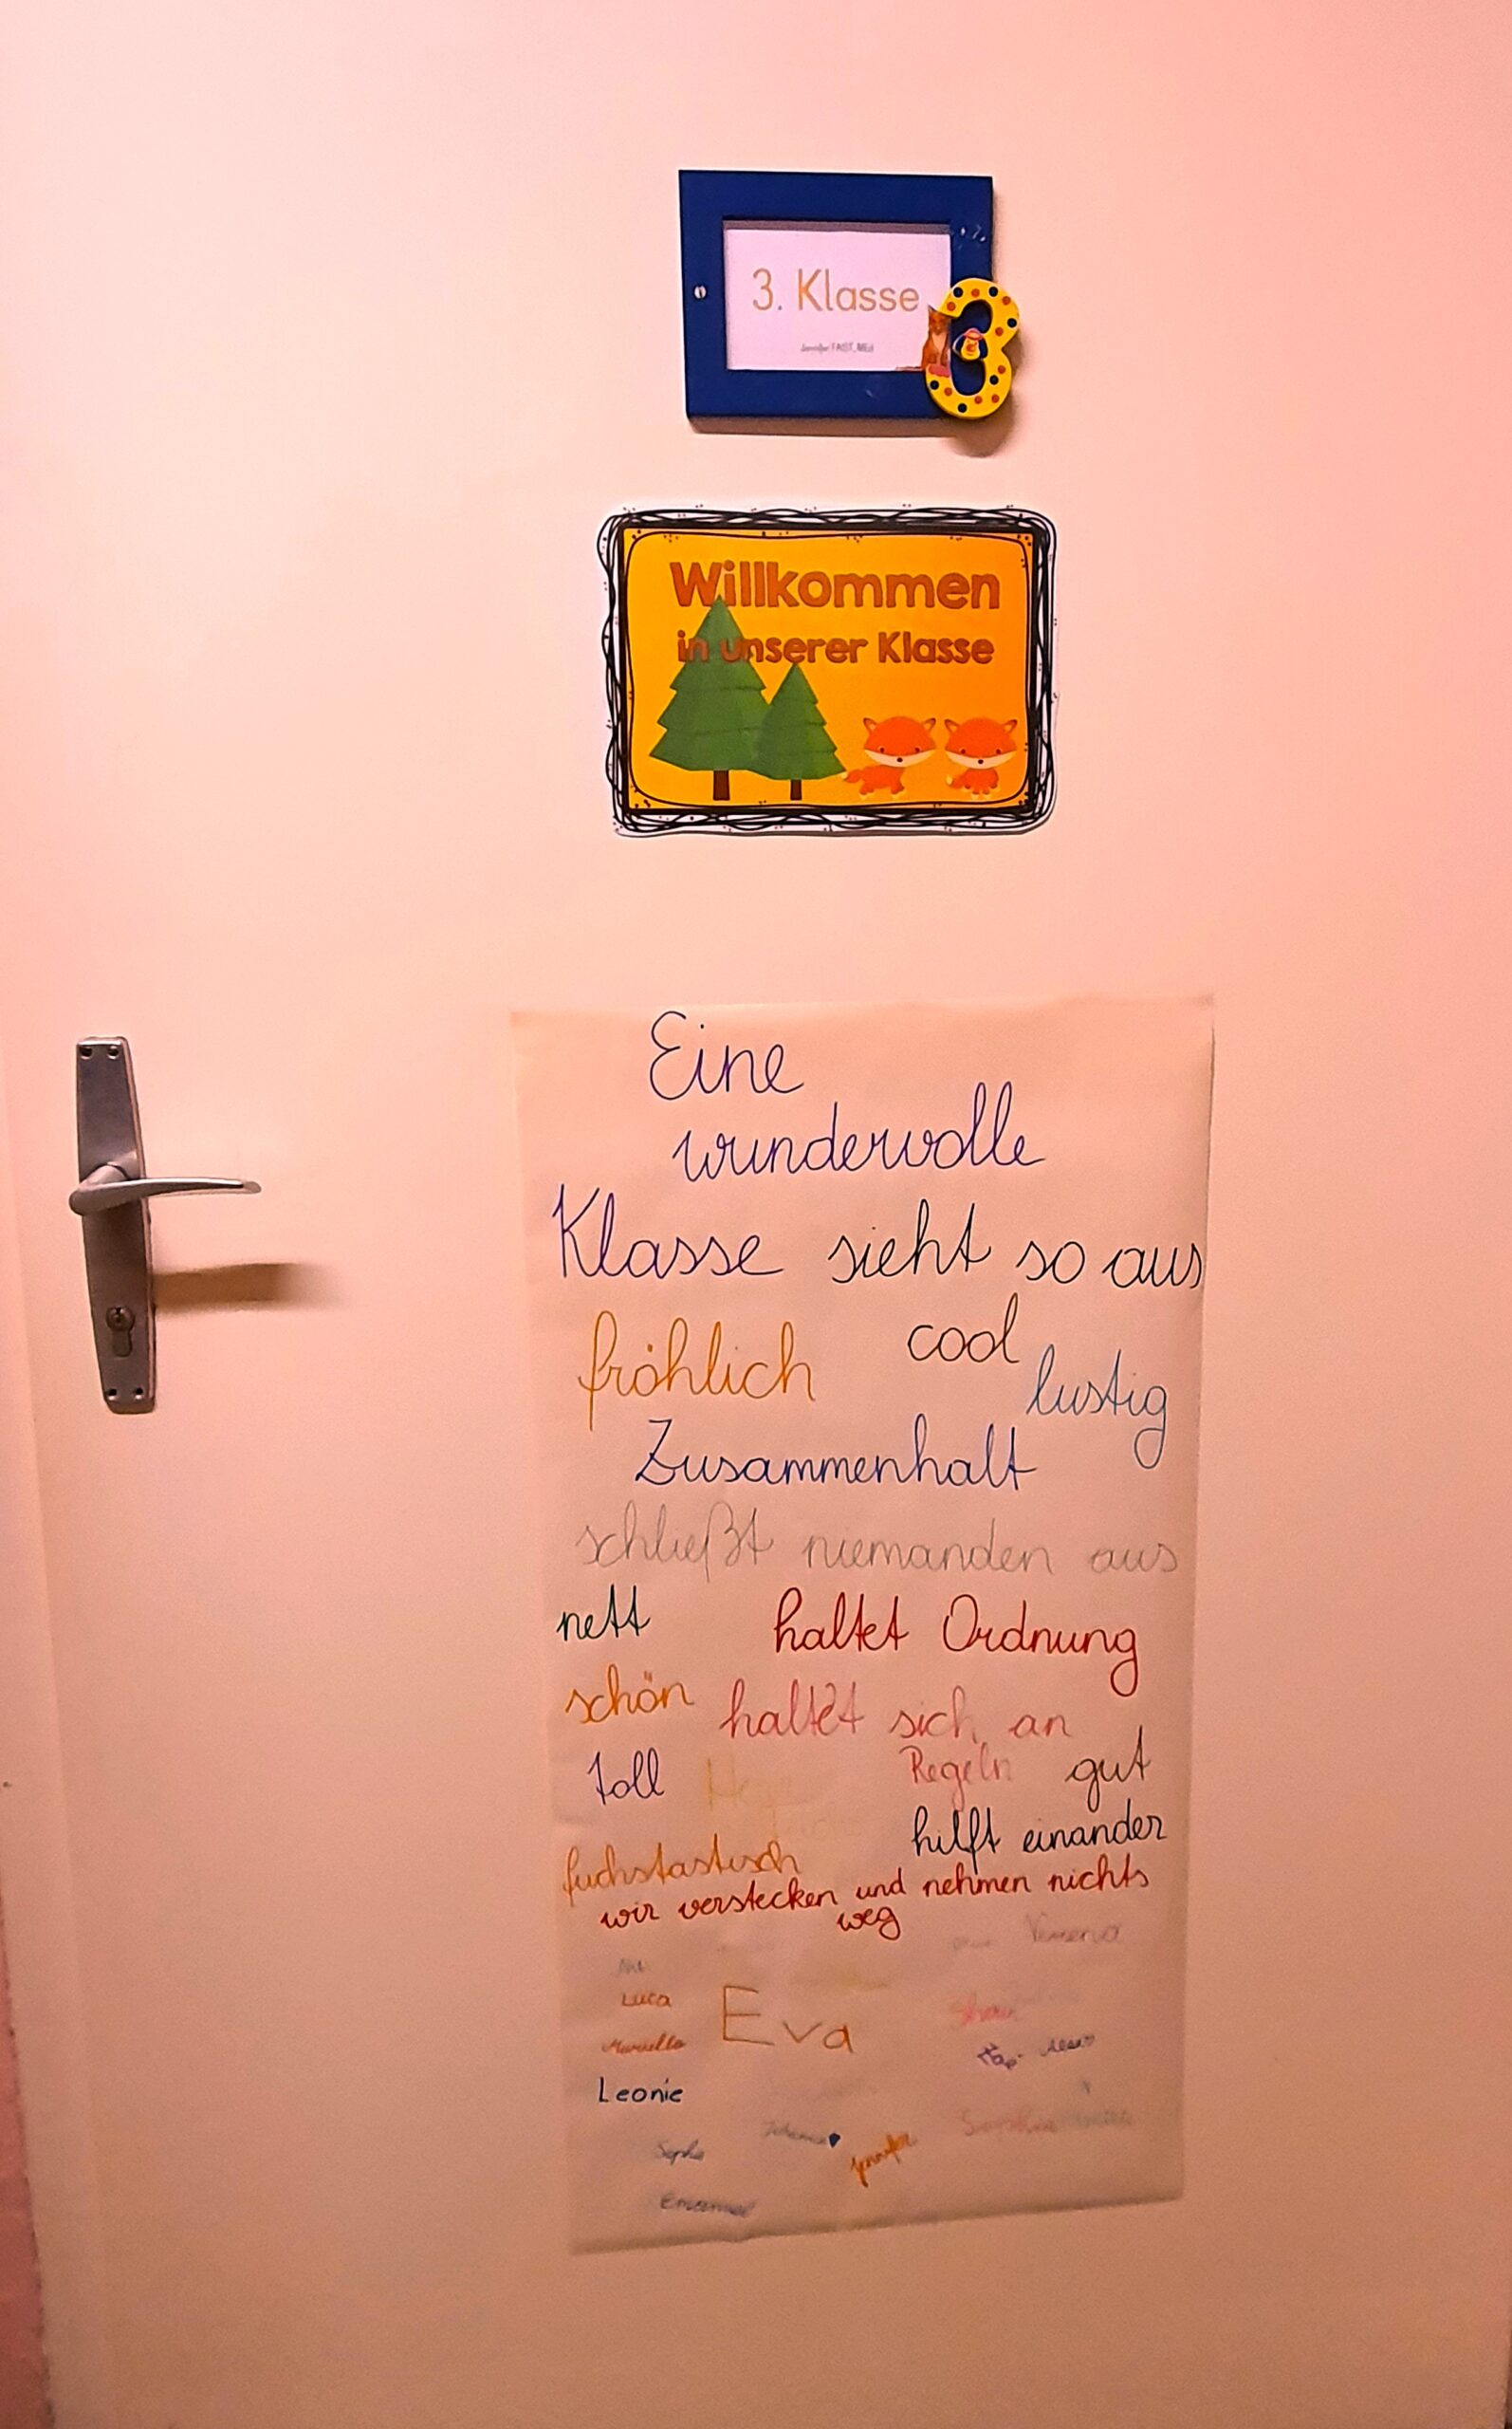 3. Klasse
3
Willkommen
in unserer Klasse
Eine
wundervolle
Klasse sieht so aus
fröhlich cool
lustig
Zusammenhalt
schließt niemanden aus
nett haltet Ordnung
schön haltet sich an
toll Regeln gut
hilft einander
fuchstastisch
wir verstecken und nehmen nichts
weg
Luca
Eva
Leonie
Sophia
Jennifer
Emanuel